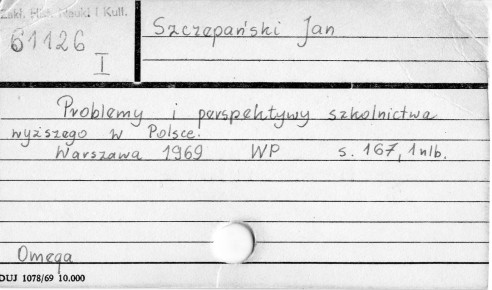 Zakł. Hist. Nauki i Kult.
61126
I
Szczepański Jan
Problemy i perspektywy szkolnictwa
wyższego w Polsce.
Warszawa 1969 WP s. 167, 1 nlb.
Omega
DUJ 1078/69 10.000